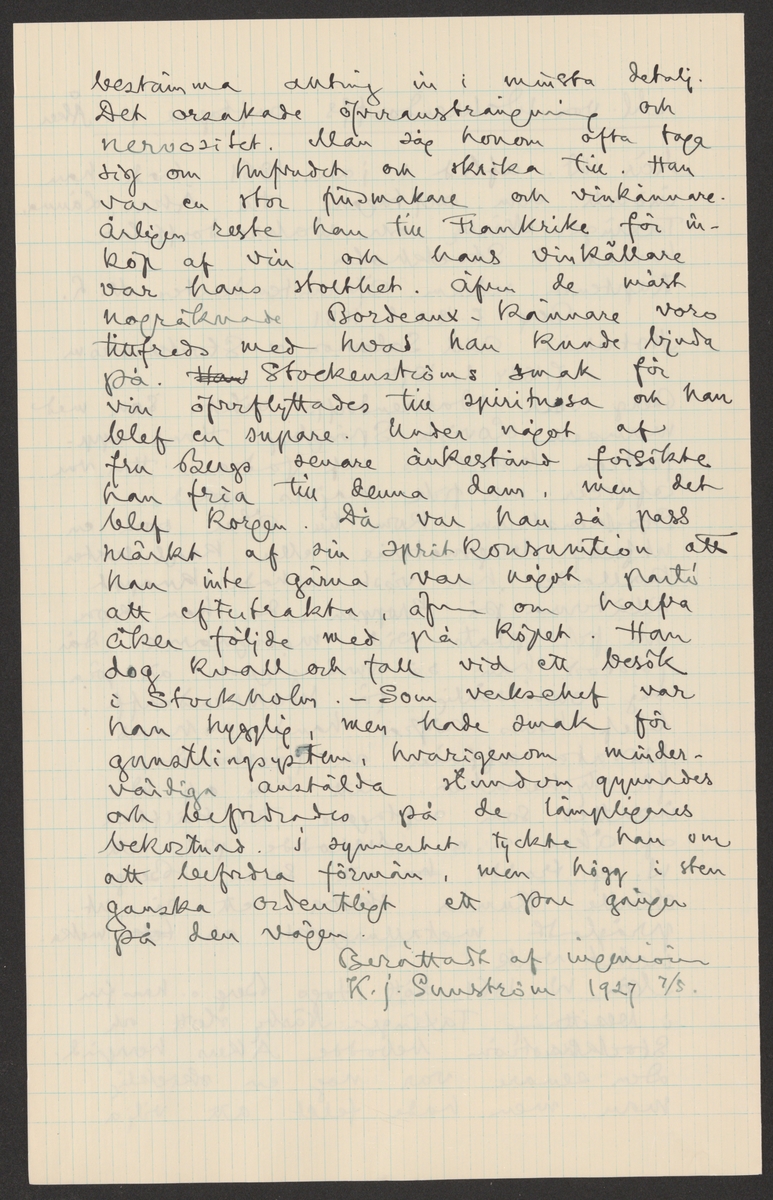 bestämma allting in i minsta detalj.
Det orsakade öfveransträngning och
nervositet. Man såg honom ofta taga
sig om hufvudet och skrika till. Han
var en stor finsmakare och vinkännare.
Årligen reste han till Frankrike för in-
köp af vin och hans vinkällare
var hans stolthet. Äfven de mäst
nogräknade Bordeaux-kännare voro
tillfreds med hvad han kunde bjuda
på. Han Stockenströms smak för
vin öfverflyttades till spirituosa och han
blef en supare. Under något af
fru Bergs senare änkestånd försökte
han fria till denna dam, men det
blef korgen. Då var han så pass
märkt af sin spritkonsumtion att
han inte gärna var något parti
att eftertrakta, äfven om
åker följde med på köpet. Han
dog knall och fall vid ett besök
i Stockholm. – Som verkschef var
han hygglig, men hade smak för
gunstlingsystem, hvarigenom minder-
värdiga anstälda stundom gynnades
och befordrades på de lämpligares
bekostnad. I synnerhet tyckte han om
att befordra förmän, men högg i sten
ganska ordentligt ett par gånger
på den vägen.
Berättadt af ingeniören
K. J. Sunström 1927 7/5.